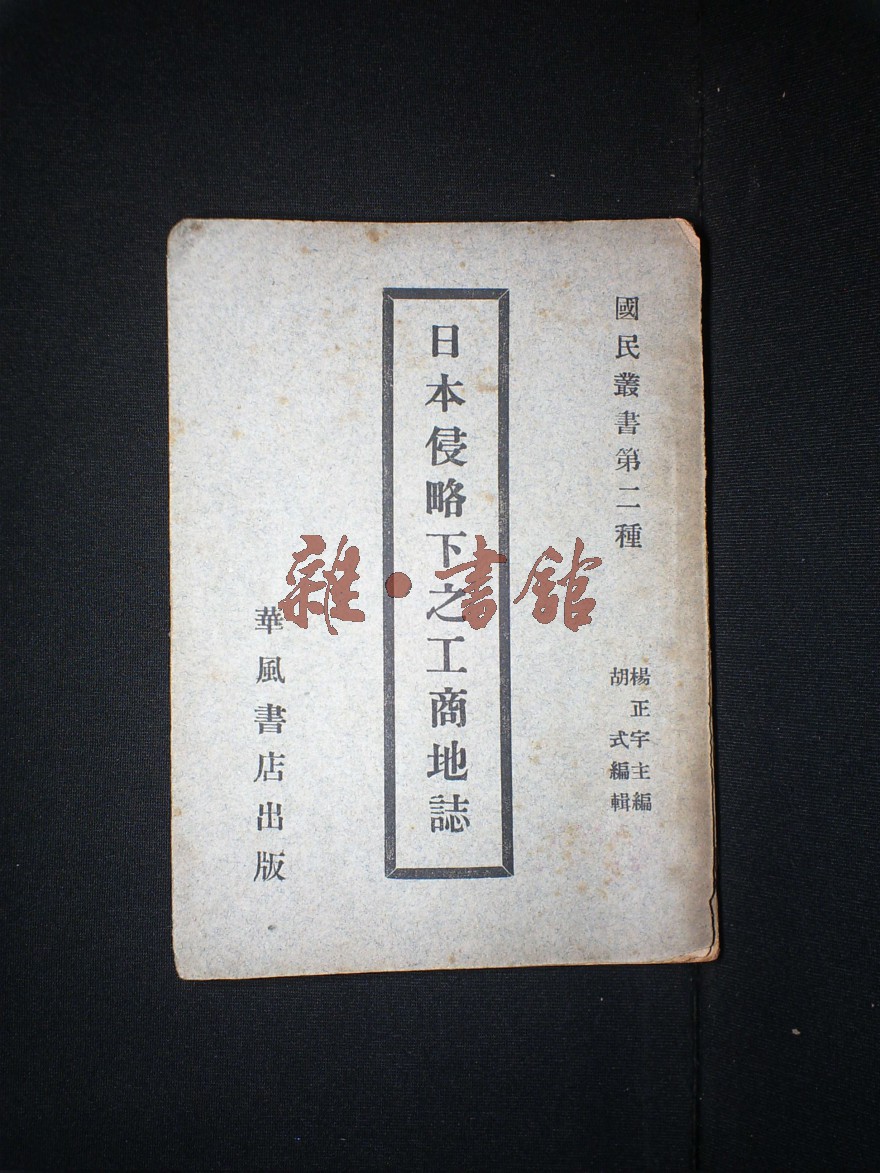 國民叢書第二種
楊正宇主編
胡式編輯
日本侵略下之工商地誌
華風書店出版
雜·書館